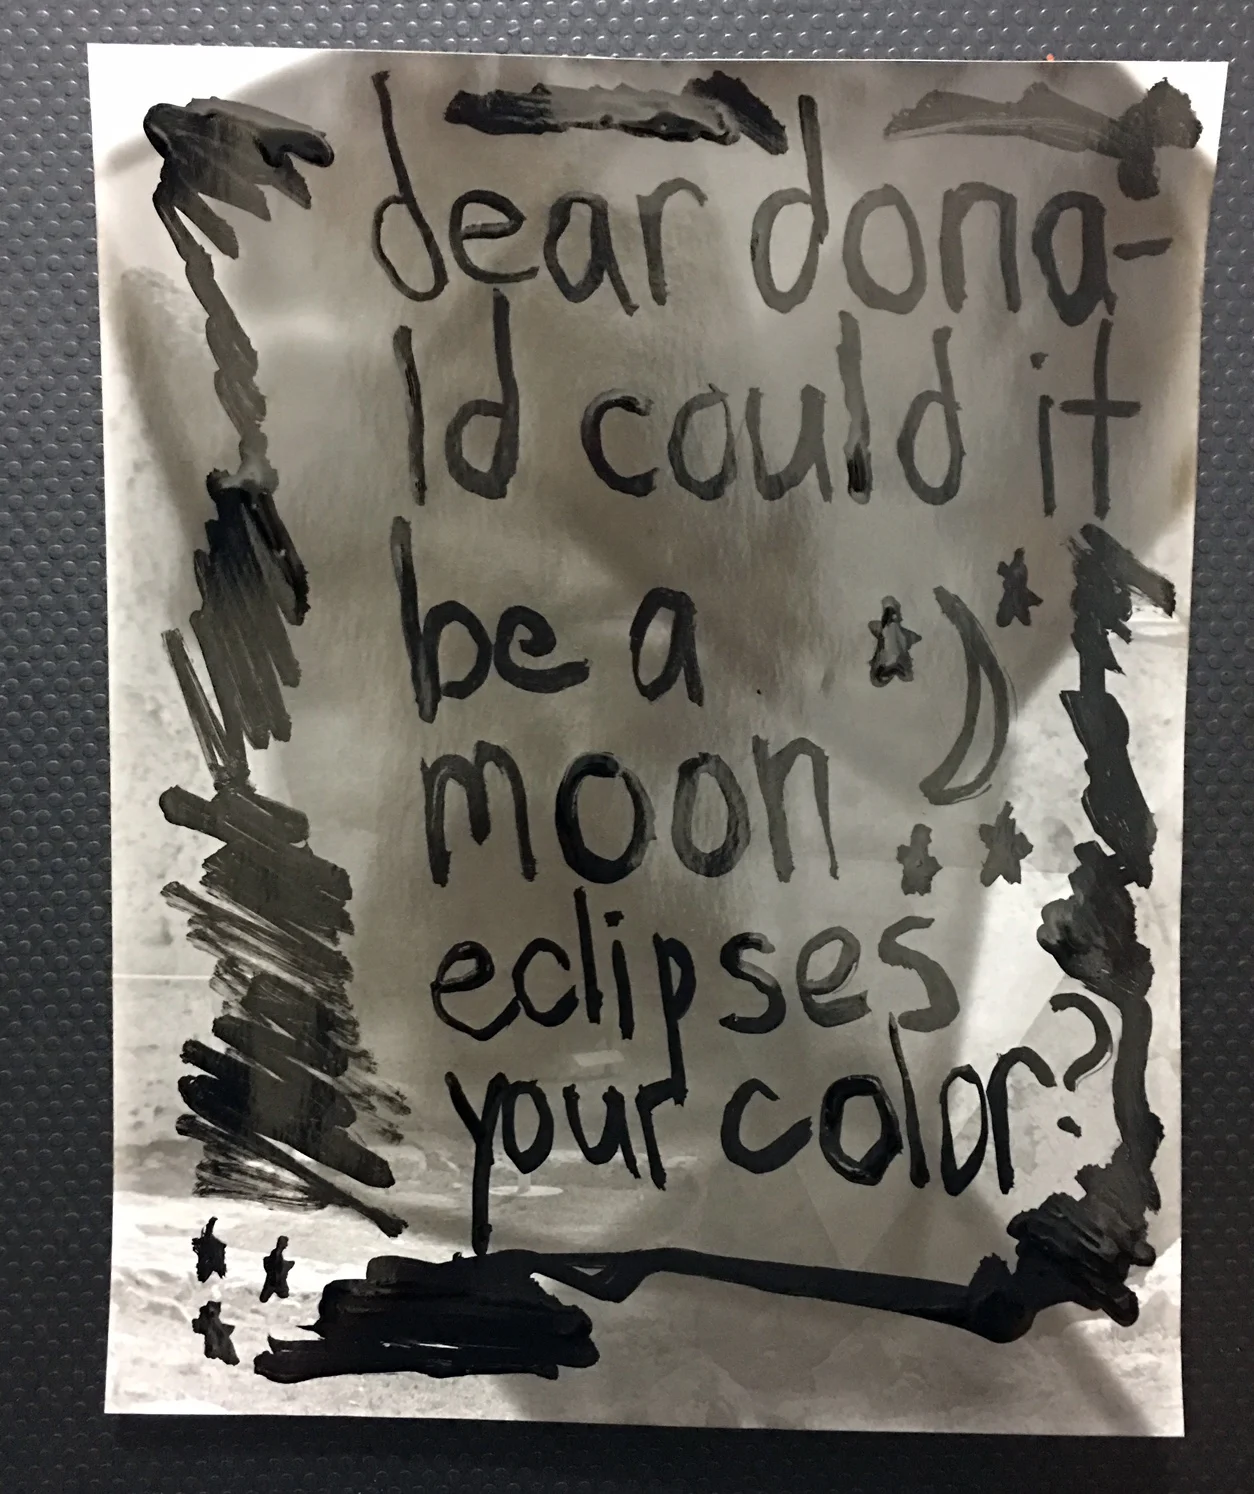 dear dona-
ld could it
be a
moon
eclipses
your color?